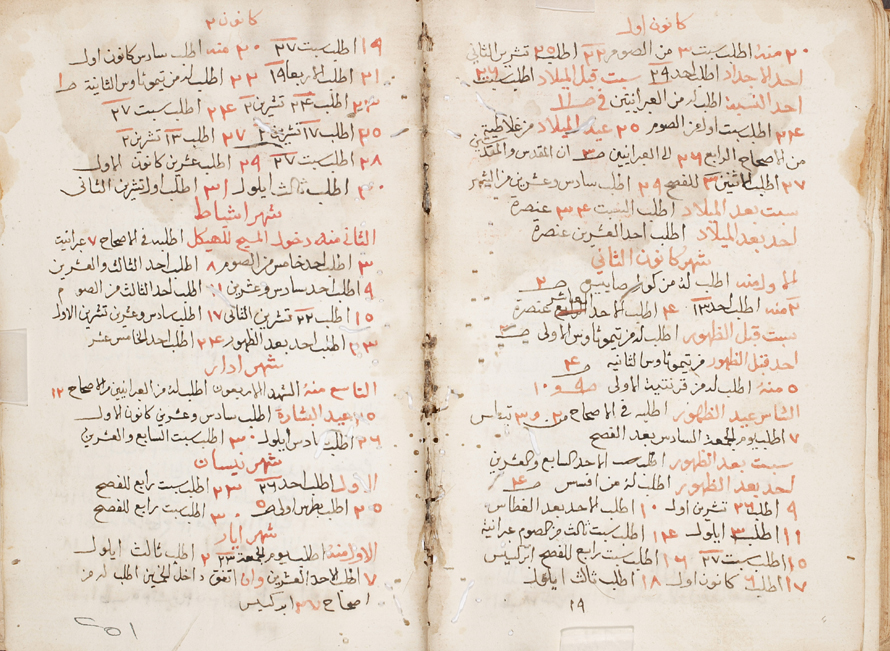 كانون اول
٢٠ منه اطلب سبت ٣ من الصوم ٢٢ اطلب ٢٥ تشرين الثاني
احد الاجداد اطلب احد ٢٩ سبت قبل الميلاد اطلب سبت ٢٦
احد النسبة اطلب له من العبرانيين في صـ ١١
٢٤ اطلب سبت اول من الصوم ٢٥ عيد الميلاد من غلاطية
من الاصحاح الرابع ٢٦ الى العبرانيين صـ ان المقدس والمقدسين
٢٧ اطلب الاثنين للفصح ٢٩ اطلب سادس وعشرين من الشهر
سبت بعد الميلاد اطلب السبت عنصرة
احد بعد الميلاد اطلب احد العشرين عنصرة
شهر كانون الثاني
الاول منه اطلب له من كولوصايس صـ ٢
٢ منه اطلب احد ١٣ ٤ اطلب الاحد العاشر عنصرة
سبت قبل الظهور اطلب له من تيموثاوس الاولى صـ ٣
احد قبل الظهور من تيموثاوس الثانيه صـ ٤
٥ منه اطلب له من قرنتية الاولى صـ ٩ و ١٠
السادس عيد الظهور اطلبه في الاصحاح من ٢ و ٣ تيطس
٧ اطلب يوم الجمعة السادس بعد الفصح
سبت بعد الظهور اطلب الاحد السابع والعشرين
احد بعد الظهور اطلب له من افسس صـ ٤
٩ اطلب ٢٦ تشرين اول ١٠ اطلب الاحد بعد الغطاس
١١ اطلب ٣ ايلول ١٤ اطلب سبت ثالث من الصوم عبرانية
١٥ اطلب سبت ٢٧ ١٦ اطلب سبت رابع للفصح ابركسيس
١٧ اطلب ٦ كانون اول ١٨ اطلب ثالث ايلول
١٩
كانون ٢
١٩ اطلب سبت ٢٧ ٢٠ منه اطلب سادس كانون اول
٢١ اطلب الاربعا ١٩ ٢٢ اطلب له من تيموثاوس الثانية صـ ١
٢٣ اطلب ٢٤ تشرين ٢ ٢٤ اطلب سبت ٢٧
٢٥ اطلب ١٧ تشرين ٢ ٢٧ اطلب ١٣ تشرين ٢
٢٨ اطلب سبت ٢٧ ٢٩ اطلب عشرين كانون الاول
٣٠ اطلب ثالث ايلول ٣١ اطلب اول تشرين الثاني
شهر اشباط
الثاني منه دخول المسيح للهيكل اطلبه في الاصحاح ٧ عبرانية
٣ اطلب احد خامس من الصوم ٨ اطلب احد الثالث والعشرين
٩ اطلب احد سادس وعشرين ١١ اطلب احد الثالث من الصوم
١٥ اطلب ٢٢ تشرين الثاني ١٧ اطلب سادس وعشرين تشرين الاول
٢٣ اطلب احد بعد الظهور ٢٤ اطلب احد الخامس عشر
شهر ادار
التاسع منه الشهدا الاربعون اطلب له من العبرانيين الاصحاح ١٢
٢٥ عيد البشارة اطلب سادس وعشرين كانون الاول
٢٦ اطلب سادس ايلول ٣٠ اطلب سبت السابع والعشرين
شهر نيسان
الاول اطلب احد ٢٦ ٢٣ اطلب سبت رابع للفصح
٢٥ اطلب بطرس اولى صـ ٥ ٣٠ اطلب سبت رابع للفصح
شهر ايار
الاول منه اطلب يوم الجمعة ٢٣ ٢ اطلب ثالث ايلول
٧ اطلب الاحد العشرين وان اتفق داخل الخمسين اطلب له من
اصحاح ٢٦ ابركسيس